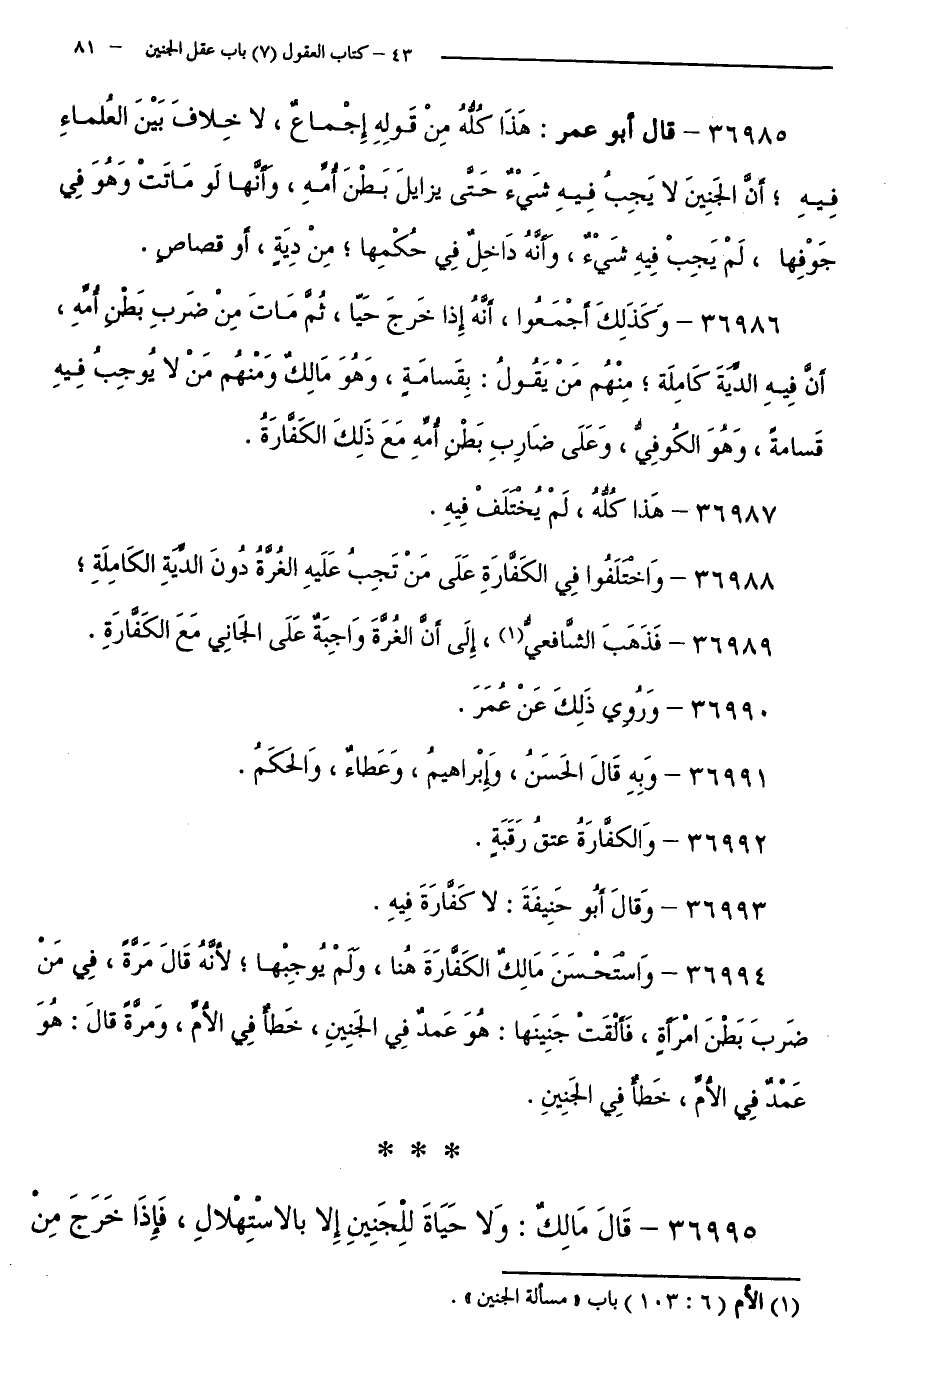 ٤٣ – كتاب العقول (٧) باب عقل الجنين – ٨١
٣٦٩٨٥ – قال أبو عمر : هَذَا كُلُّهُ مِنْ قَولِهِ إِجْماعٌ ، لا خِلافَ بَيْنَ العُلماءِ
فِيهِ ؛ أَنَّ الجَنِينَ لا يَجِبُ فِيهِ شَيْءٌ حَتَّى يزايلَ بَطْنَ أُمِّهِ ، وَأَنَّها لَو مَاتَتْ وَهُوَ فِي
جَوْفِها ، لَمْ يَجِبْ فِيهِ شَيْءٌ ، وَأَنَّهُ دَاخِلٌ فِي حُكْمِها ؛ مِنْ دِيَةٍ ، أو قصاصٍ .
٣٦٩٨٦ – وَكَذَلِكَ أَجْمَعُوا ، أَنَّهُ إِذا خَرجَ حَيّا ، ثُمَّ مَاتَ مِنْ ضَربِ بَطْنِ أُمِّهِ ،
أَنَّ فِيهِ الدِّيَةَ كَامِلَة ؛ مِنْهُم مَنْ يَقُولُ : بِقَسامَةٍ ، وَهُوَ مَالِكٌ وَمنْهُم مَنْ لا يُوجِبُ فِيهِ
قَسامةً ، وَهُوَ الكُوفِيُّ ، وَعَلَى ضَارِبِ بَطْنِ أُمِّهِ مَعَ ذَلِكَ الكَفَّارَةُ .
٣٦٩٨٧ – هَذا كُلُّهُ ، لَمْ يُخْتَلَفْ فِيهِ .
٣٦٩٨٨ – وَاخْتَلَفُوا فِي الكَفَّارَةِ عَلَى مَنْ تَجِبُ عَلَيهِ الغُرَّةُ دُونَ الدِّيَةِ الكَامِلَةِ ؛
٣٦٩٨٩ – فَذَهَبَ الشَّافعيُّ(١) ، إِلَى أَنَّ الغُرَّةَ وَاجِبَةٌ عَلَى الجَانِي مَعَ الكَفَّارَةِ .
٣٦٩٩٠ – وَرُوِي ذَلِكَ عَنْ عُمَرَ .
٣٦٩٩١ – وَبِهِ قَالَ الحَسَنُ ، وَإِبْراهيمُ ، وَعَطاءٌ ، وَالحَكَمُ .
٣٦٩٩٢ – وَالكفَّارَةُ عتقُ رَقَبَةٍ .
٣٦٩٩٣ – وَقالَ أَبُو حَنِيفَةَ : لا كَفَّارَةَ فِيهِ .
٣٦٩٩٤ – وَاسْتَحْسَنَ مَالِكٌ الكَفَّارَةَ هُنا ، وَلَمْ يُوجِبْها ؛ لأَنَّهُ قَالَ مَرَّةً ، فِي مَنْ
ضَربَ بَطْنَ امْرَأةٍ ، فَأَلْقَتْ جَنِينَها : هُوَ عَمدٌ فِي الجَنِينِ ، خَطأٌ فِي الأُمِّ ، وَمرَّةً قالَ : هُوَ
عَمْدٌ فِي الأُمِّ ، خَطأٌ فِي الجَنِينِ .
* * *
٣٦٩٩٥ – قَالَ مَالِكٌ : وَلا حَيَاةَ لِلْجَنِينِ إِلا بالاسْتِهْلالِ ، فَإِذَا خَرَجَ مِنْ
(١) الأم (٦ : ١٠٣) باب « مسألة الجنين » .